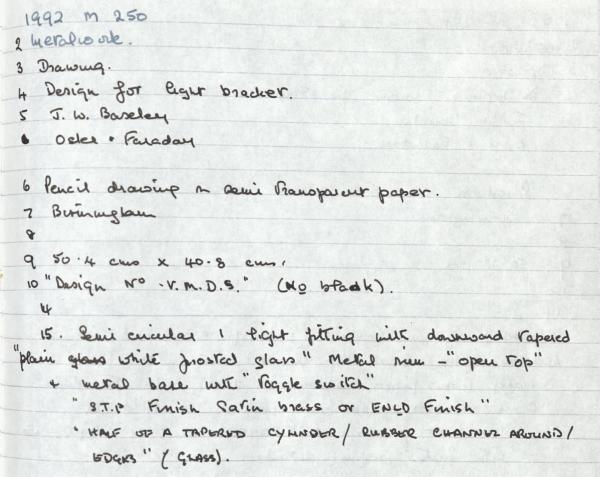 1992 M 250
2 Metalwork.
3 Drawing.
4 Design for light bracket.
5 J. W. Baseley
6 Osler & Faraday
6 Pencil drawing on semi transparent paper.
7 Birmingham
8
9 50.4 cms x 40.8 cms.
10 "Design No. V.M.D.S." (No black).
4
15. Semi circular 1 light fitting with downward tapered
"plain glass white frosted glass" Metal rim - "open top"
& metal base with "toggle switch"
"S.T.P Finish Satin brass or ENLD Finish"
"HALF OF A TAPERED CYLINDER/ RUBBER CHANNEL AROUND/
EDGES" (GLASS).